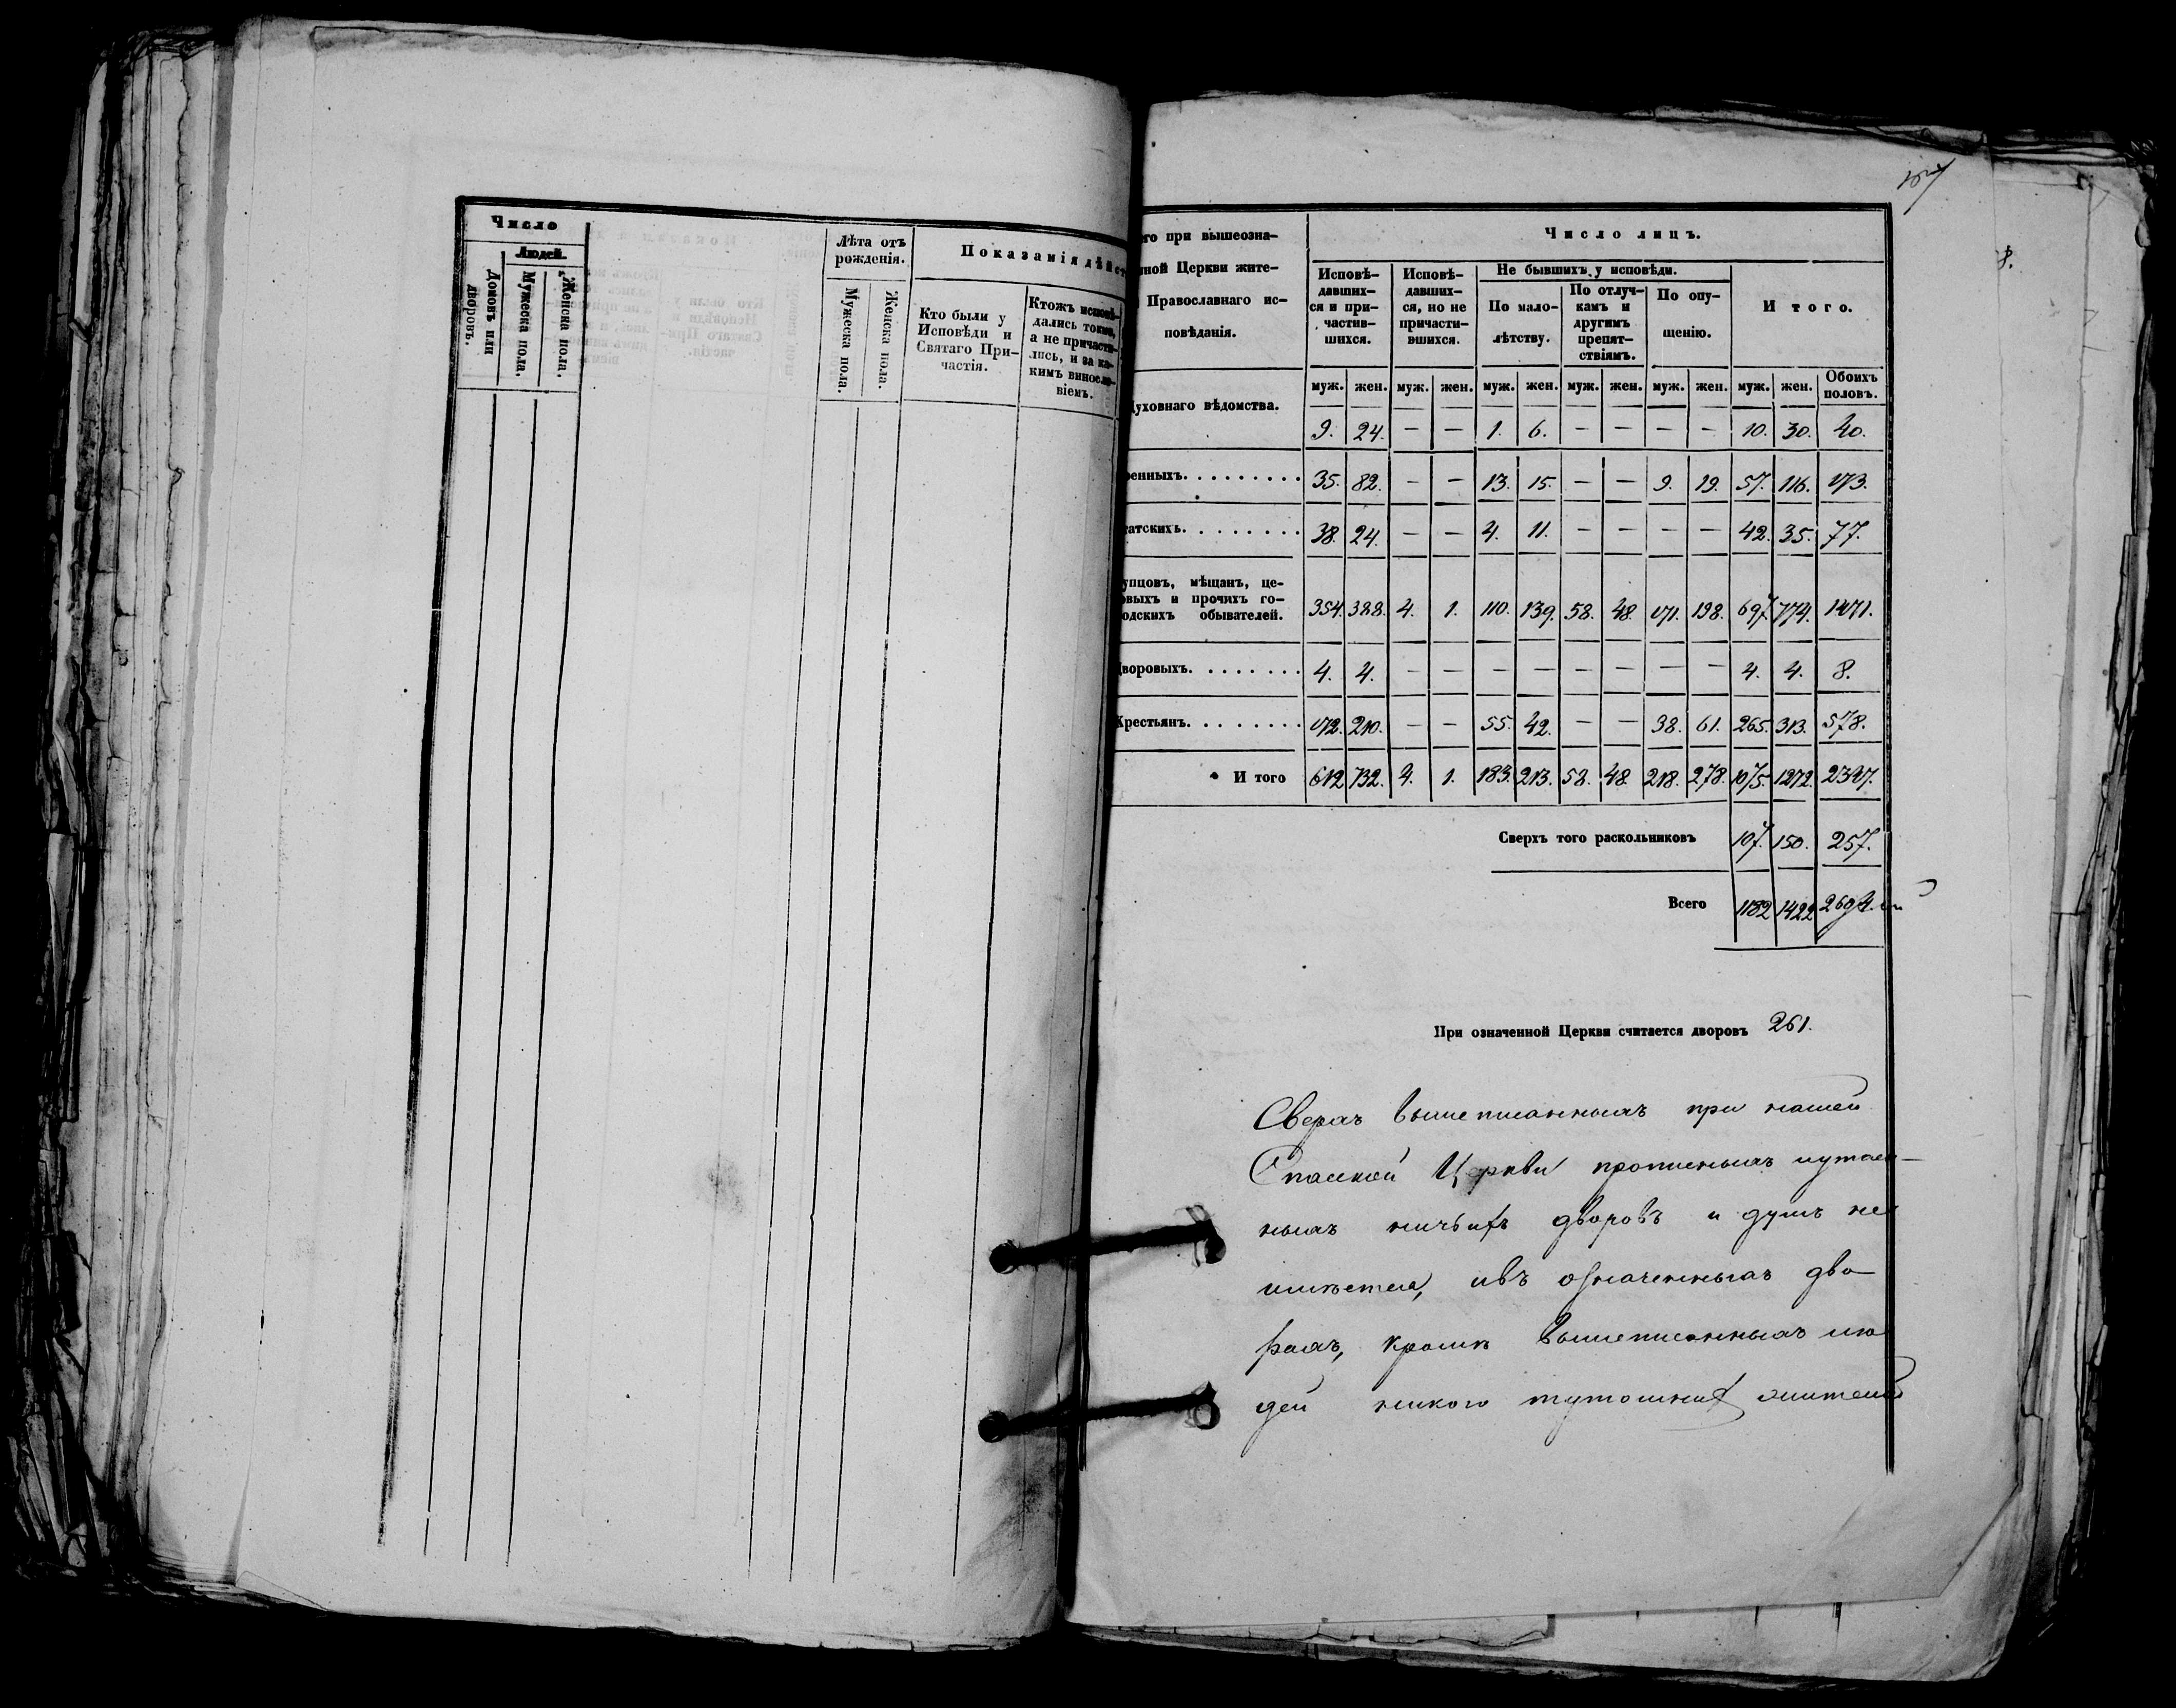 Число
Людей.
Домовъ или дворовъ.
Мужеска пола.
Женска пола.
Лѣта отъ
рожденія.
Мужеска пола.
Женска пола.
Показанія дѣйст
Кто были у
Исповѣди и
Святаго При-
частія.
Ктожъ исповѣ-
дались токмо,
а не причасти-
лись, и за ка-
кимъ виносло-
віемъ.
го при вышеозна-
ной Церкви жите-
Православнаго ис-
повѣданія.
Число лицъ.
Исповѣ-
давших-
ся и при-
частив-
шихся.
Исповѣ-
давших-
ся, но не
причасти-
вшихся.
Не бывшихъ у исповѣди.
По мало-
лѣтству.
По отлуч-
камъ и
другимъ
препят-
ствіямъ.
По опу-
щенію.
И того.
муж. жен. муж. жен. муж. жен. муж. жен. муж. жен. муж. жен. Обоихъ половъ.
Духовнаго вѣдомства.
9. 24. — — 1. 6. — — — — 10. 30. 40.
оенныхъ. . . . . . . . . 35. 82. — — 13. 15. — — 9. 19. 57. 116. 173.
татскихъ. . . . . . . . 38. 24. — — 4. 11. — — — — 42. 35. 77.
упцовъ, мѣщанъ, це-
овыхъ и прочихъ го-
одскихъ обывателей. 354. 388. 4. 1. 110. 139. 58. 48. 171. 198. 697. 774. 1471.
Дворовыхъ. . . . . . . 4. 4. — — — — — — — — 4. 4. 8.
Крестьянъ. . . . . . . . 172. 210. — — 55. 42. — — 38. 61. 265. 313. 578.
И того 612 732. 4. 1. 183. 213. 58. 48. 218. 278. 1075. 1272. 2347.
Сверхъ того раскольниковъ 107. 150. 257.
Всего 1182 1422 2604.
При означенной Церкви считается дворовъ 261.
Сверхъ вышеписанныхъ при нашей
Спаской Церкви прописныхъ иутаен-
ныхъ ничьихъ дворовъ и душъ не
имѣется, ивъ означенныхъ дво-
рахъ, кромѣ вышеписанныхъ лю
дей никого тутошних жителей